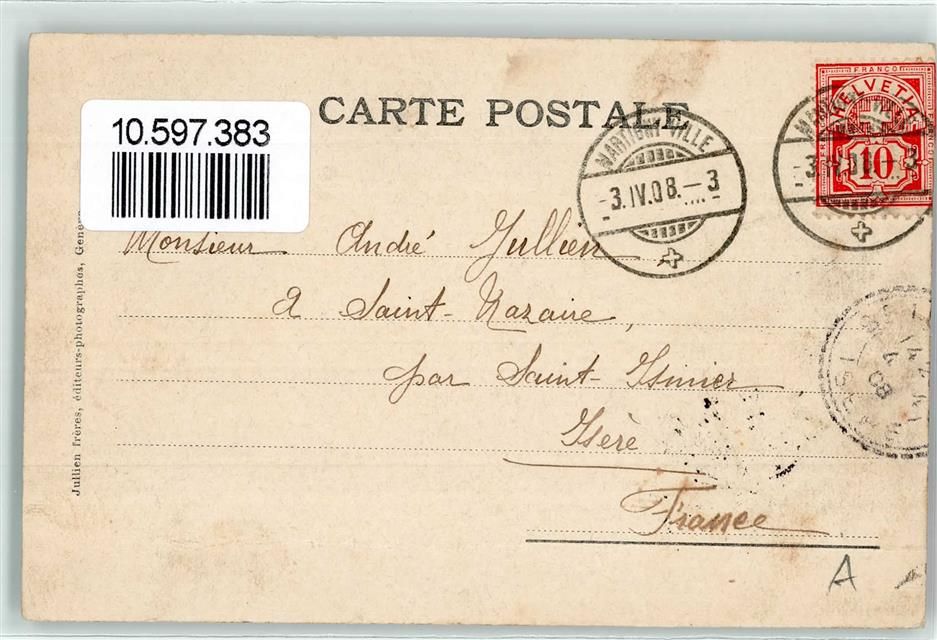 10.597.383
CARTE POSTALE
FRANCO
HELVETIA
10
MARTIGNY-VILLE
-3.IV.08.-3
-3.IV.08.-3
Monsieur André Jullien
à Saint-Nazaire,
par Saint-Ismier
Isère
France
Jullien frères, éditeurs-photographes, Genève
ISÈRE
A